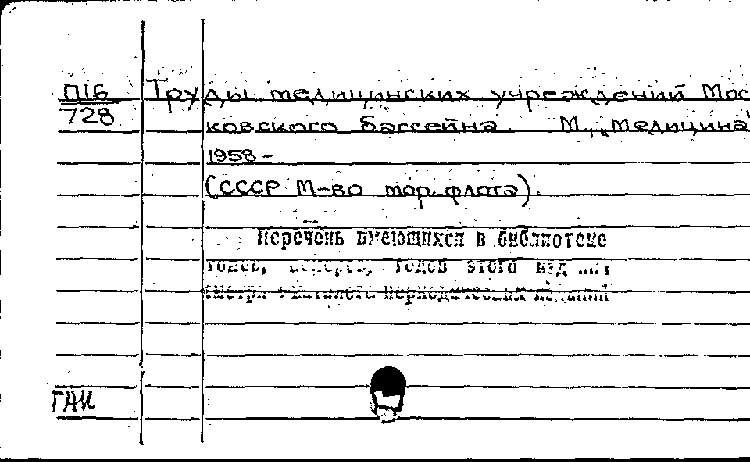 П16 Труды медицинских учреждений Мос
728 ковского бассейна. М., "Медицина"
1958-
(СССР М-во мор. флота).
Перечень имеющихся в библиотеке
томов, номеров, годов этого издания
смотри в каталоге периодических изданий
ГАИ